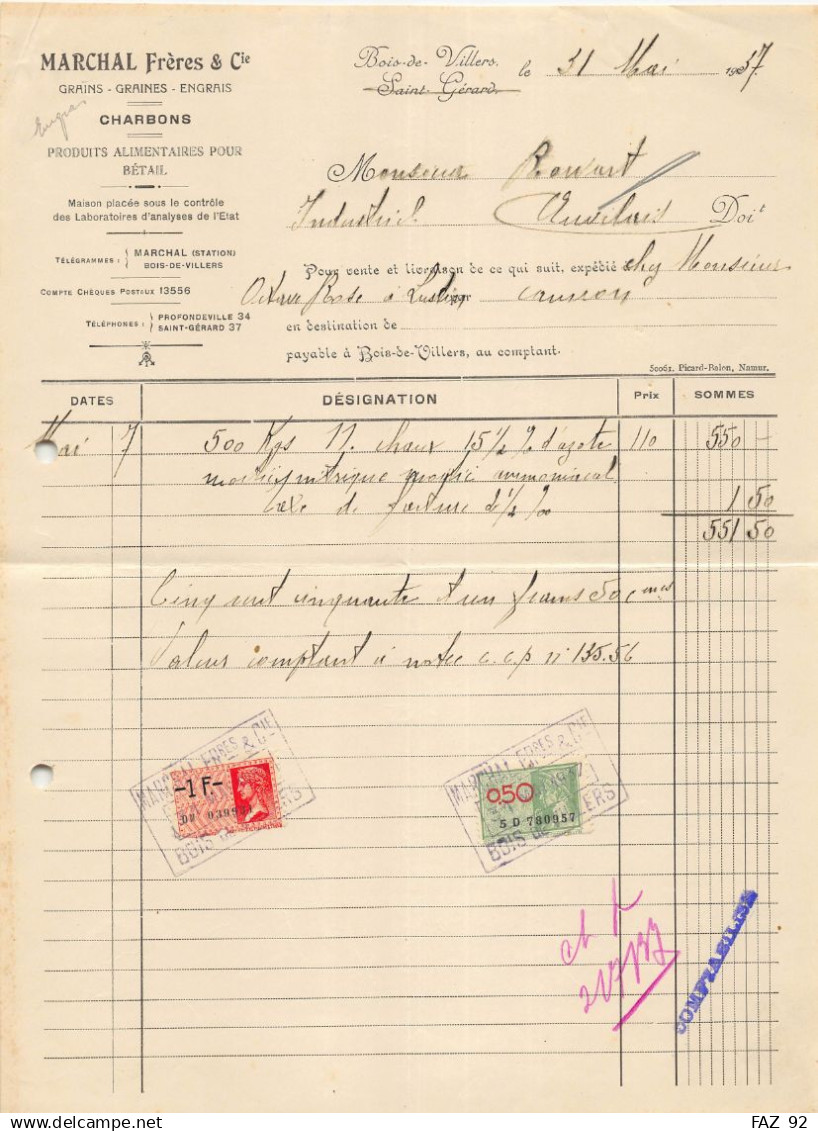 MARCHAL Frères & Cie
GRAINS - GRAINES - ENGRAIS
Engrais
CHARBONS
PRODUITS ALIMENTAIRES POUR
BÉTAIL
Maison placée sous le contrôle
des Laboratoires d'analyses de l'Etat
TÉLÉGRAMMES : MARCHAL (STATION)
BOIS-DE-VILLERS
COMPTE CHÈQUES POSTAUX 13556
TÉLÉPHONES : PROFONDEVILLE 34
SAINT-GÉRARD 37
Bois-de-Villers.
Saint-Gérard, le 31 Mai 1937
Monsieur Rowart
Industriel Auvelais Doit
Pour vente et livraison de ce qui suit, expédié chez Monsieur
Octave Rose à Lustin par camion
en destination de
payable à Bois-de-Villers, au comptant.
50061. Picard-Balon, Namur.
DATES DÉSIGNATION Prix SOMMES
Mai 7 500 Kgs N. chaux 15 1/2 % d'azote 110 550 -
moitié nitrique moitié ammoniacal
taxe de facture 2 1/2 ‰ 1 50
551 50
Cinq cent cinquante et un francs 50 cmes
Valeur comptant à notre c.c.p n° 135.56
-1 F-
MARCHAL FRRES & CIE
BOIS de VILLERS
0,50
5 D 780957
MARCHAL FRRES & CIE
BOIS de VILLERS
COMPTABILISÉ
FAZ 92